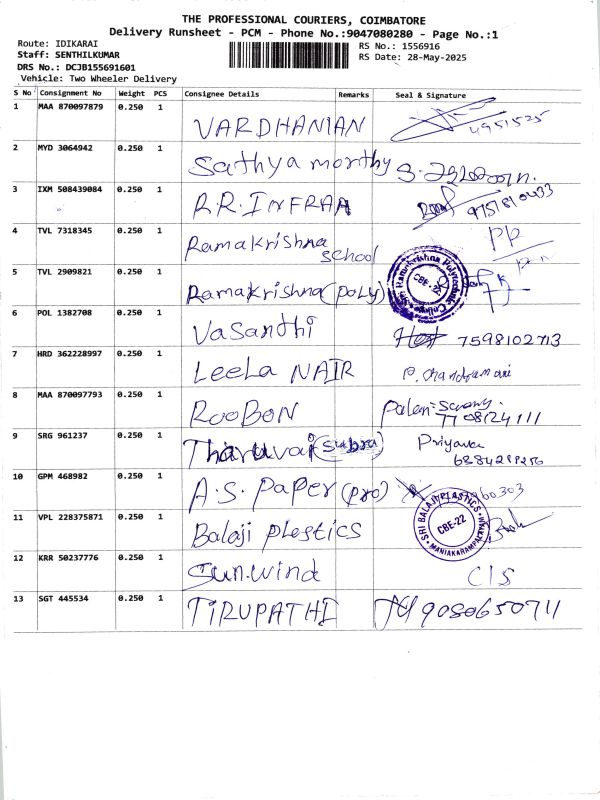 THE PROFESSIONAL COURIERS, COIMBATORE
Delivery Runsheet - PCM - Phone No.:9047080280 - Page No.:1
Route: IDIKARAI
RS No.: 1556916
Staff: SENTHILKUMAR
RS Date: 28-May-2025
DRS No.: DCJB155691601
Vehicle: Two Wheeler Delivery
S No Consignment No Weight PCS Consignee Details Remarks Seal & Signature
1 MAA 870097879 0.250 1 VARDHANIAN
2 MYD 3064942 0.250 1 Sathya morthy
3 IXM 508439084 0.250 1 R.R.INFRAA 9751810433
4 TVL 7318345 0.250 1 Ramakrishna school PP
5 TVL 2909821 0.250 1 Ramakrishna (poly) Sri Ramakrishna Polytechnic College CBE-22
6 POL 1382708 0.250 1 Vasanthi 7598102713
7 HRD 362228997 0.250 1 Leela NAIR P. chandramani
8 MAA 870097793 0.250 1 ROOBON 7708124111
9 SRG 961237 0.250 1 Tharuvai (subra) Priyanka
10 GPM 468982 0.250 1 A.S. Paper (pro)
11 VPL 228375871 0.250 1 Balaji plestics SRI BALAJI PLASTICS CBE-22 MANIAKARAMPALAYAM
12 KRR 50237776 0.250 1 Sun.wind C/S
13 SGT 445534 0.250 1 TIRUPATHI 9080650711